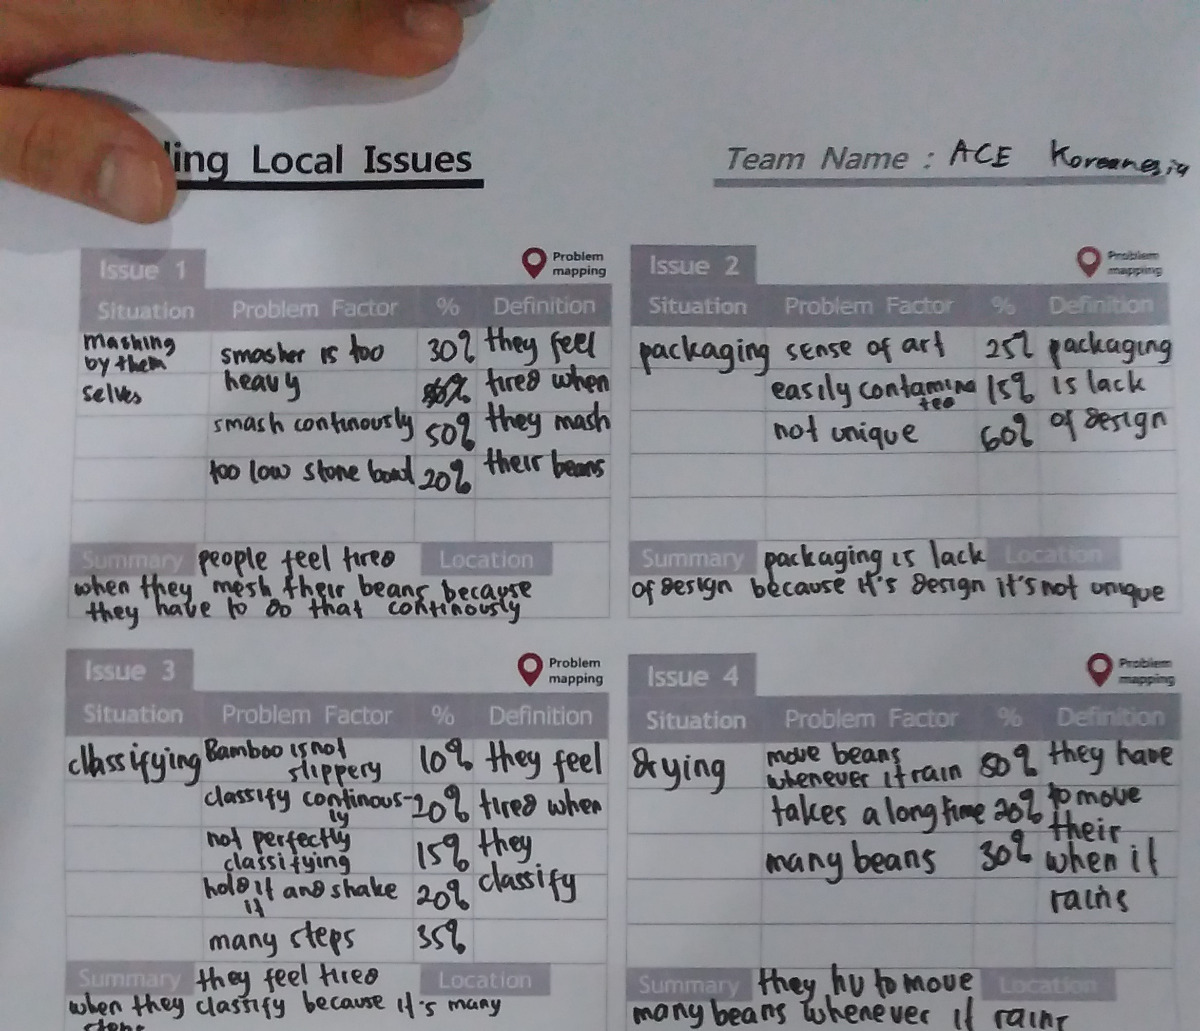 ing Local Issues
Team Name : ACE Koreanesia
Issue 1
Problem
mapping
Situation Problem Factor % Definition
mashing
by them
selves
smasher is too
heavy
30%
smash continously
50%
too low stone bowl
20%
they feel
tired when
they mash
their beans
Summary people feel tired Location
when they mesh their beans because
they have to do that continously
Issue 2
Problem
mapping
Situation Problem Factor % Definition
packaging
sense of art 25%
easily contamina
ted
15%
not unique 60%
packaging
is lack
of design
Summary packaging is lack Location
of design because it's design it's not unique
Issue 3
Problem
mapping
Situation Problem Factor % Definition
classifying
Bamboo is not
slippery
10%
classify continous-
ly
20%
not perfectly
classifying
15%
hold it and shake
it
20%
many steps 35%
they feel
tired when
they
classify
Summary they feel tired Location
when they classify because it's many
steps
Issue 4
Problem
mapping
Situation Problem Factor % Definition
drying
move beans
whenever it rain
50%
takes a long time 20%
many beans 30%
they have
to move
their
when it
rains
Summary they hv to move Location
many beans whenever it rains